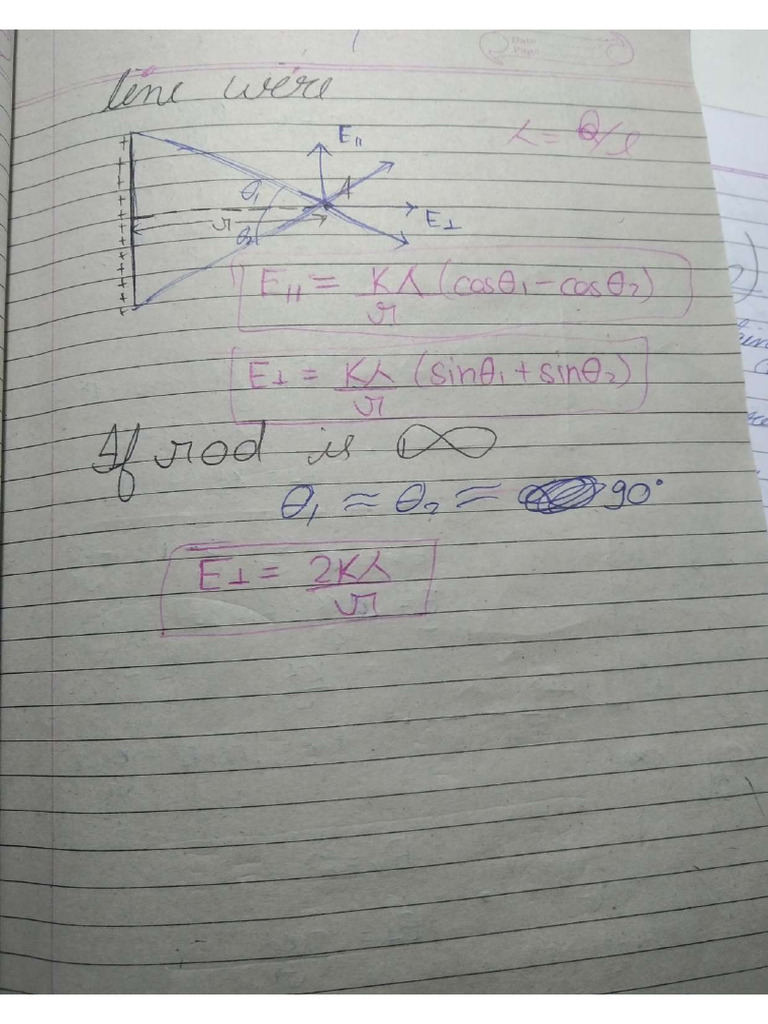 line were
λ = Q/l
E||
θ1
A
r
E⊥
θ2
E|| = Kλ/r (cosθ1 - cosθ2)
E⊥ = Kλ/r (sinθ1 + sinθ2)
If rod is ∞
θ1 ≈ θ2 ≈ 90°
E⊥ = 2Kλ/r